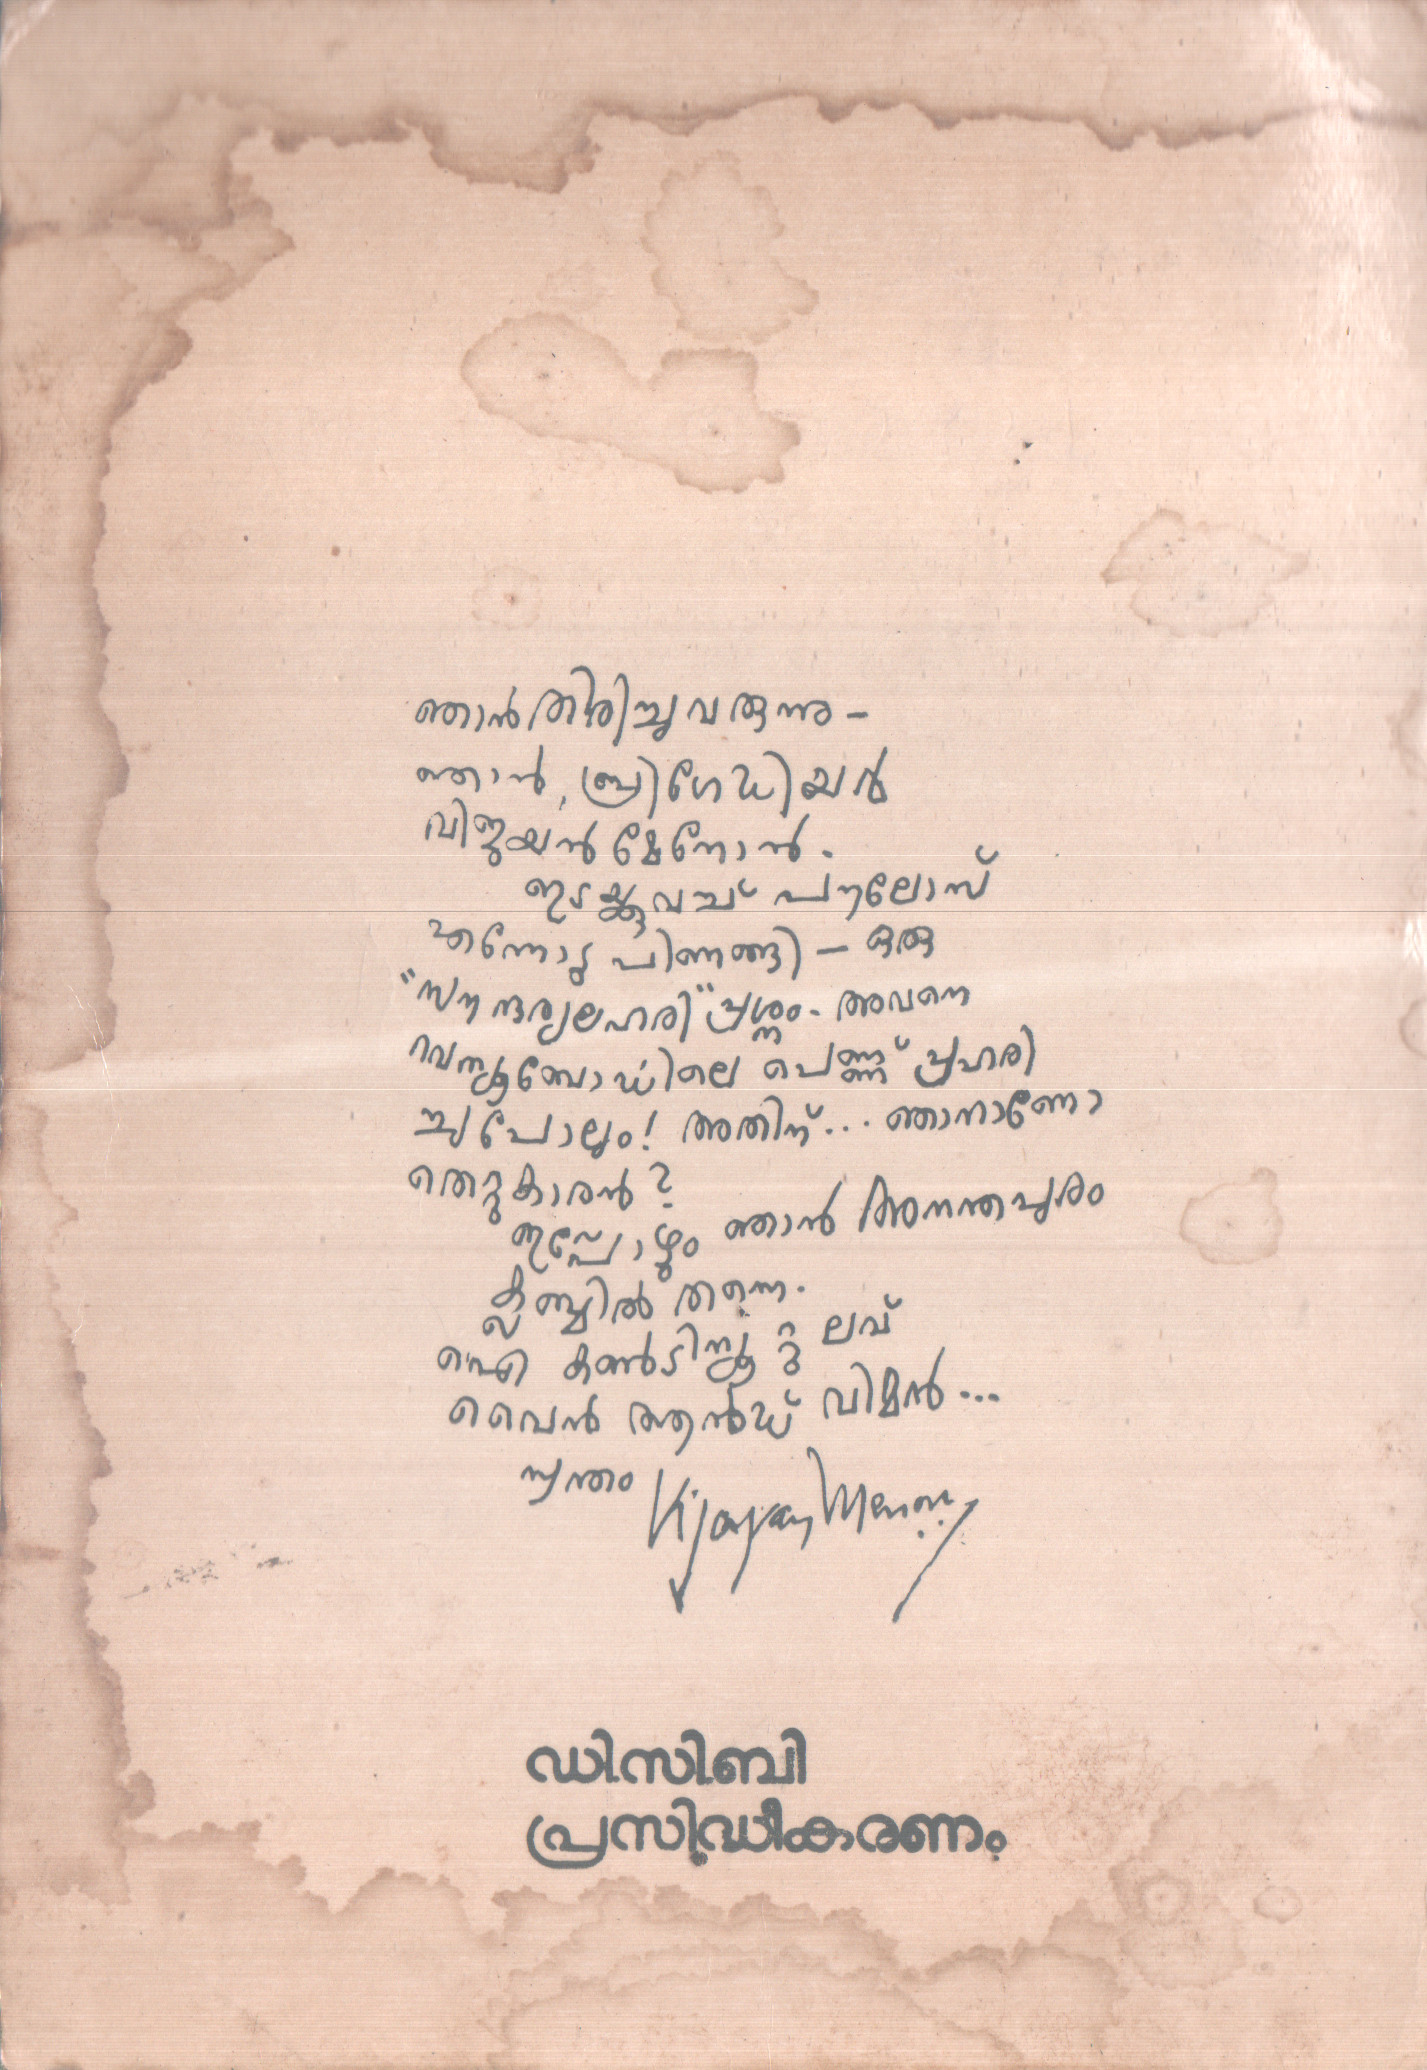 ഞാൻ തിരിച്ചുവരുന്നു –
ഞാൻ, ബ്രിഗേഡിയർ
വിജയൻ മേനോൻ.
ഇടയ്ക്കുവച്ച് പൗലോസ്
എന്നോടു പിണങ്ങി – ഒരു
"സൗന്ദര്യലഹരി" പ്രശ്നം. അവനെ
റവന്യൂബോഡിലെ പെണ്ണ് പ്രഹരി
ച്ചുപോലും! അതിന്... ഞാനാണോ
തെറ്റുകാരൻ?
ഇപ്പോഴും ഞാൻ അനന്തപുരം
ക്ലബ്ബിൽ തന്നെ.
ഐ കൺടിന്യൂ റ്റു ലവ്
വൈൻ ആൻഡ് വിമൻ...
സ്വന്തം Vijayan Menon
ഡി.സി.ബി
പ്രസിദ്ധീകരണം.